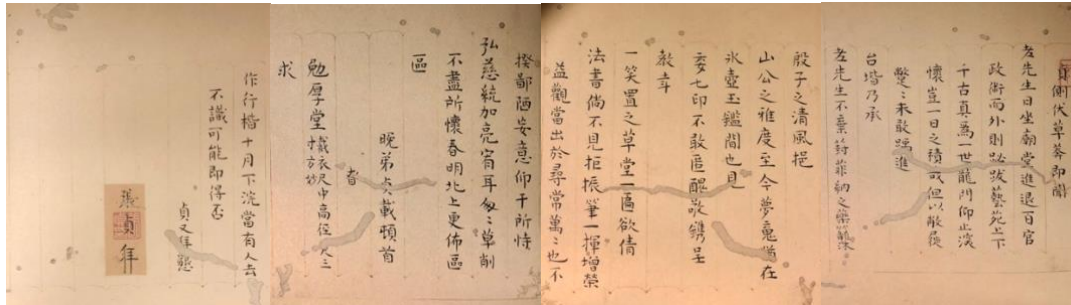 貞側伏草莽即聞
老先生日坐廟堂進退百官
政衡而外則跋藝苑上下
千古真為一世龍門仰止深
懷豈一日之積或但以敝屐
蹩蹩未敢踵進
台堦乃承
老先生不棄葑菲納之藥籠
殷子之清風挹
山公之雅度至今夢寐猶在
冰壺玉鑑間也見
委七印不敢匿醜敬鐫呈
教幸
一笑置之草堂一區欲倩
法書倘不見拒振筆一揮增榮
益觀當出於尋常萬萬也不
揆鄙陋妄意仰干所恃
弘慈統加亮宥耳匆匆草削
不盡所懷春明北上更佈區
區
晚弟貞載頓首
眷
勉厚堂
中高徑尺三
求
作行楷十月下浣當有人去
不識可能即得否
貞又拜懇
張貞拜